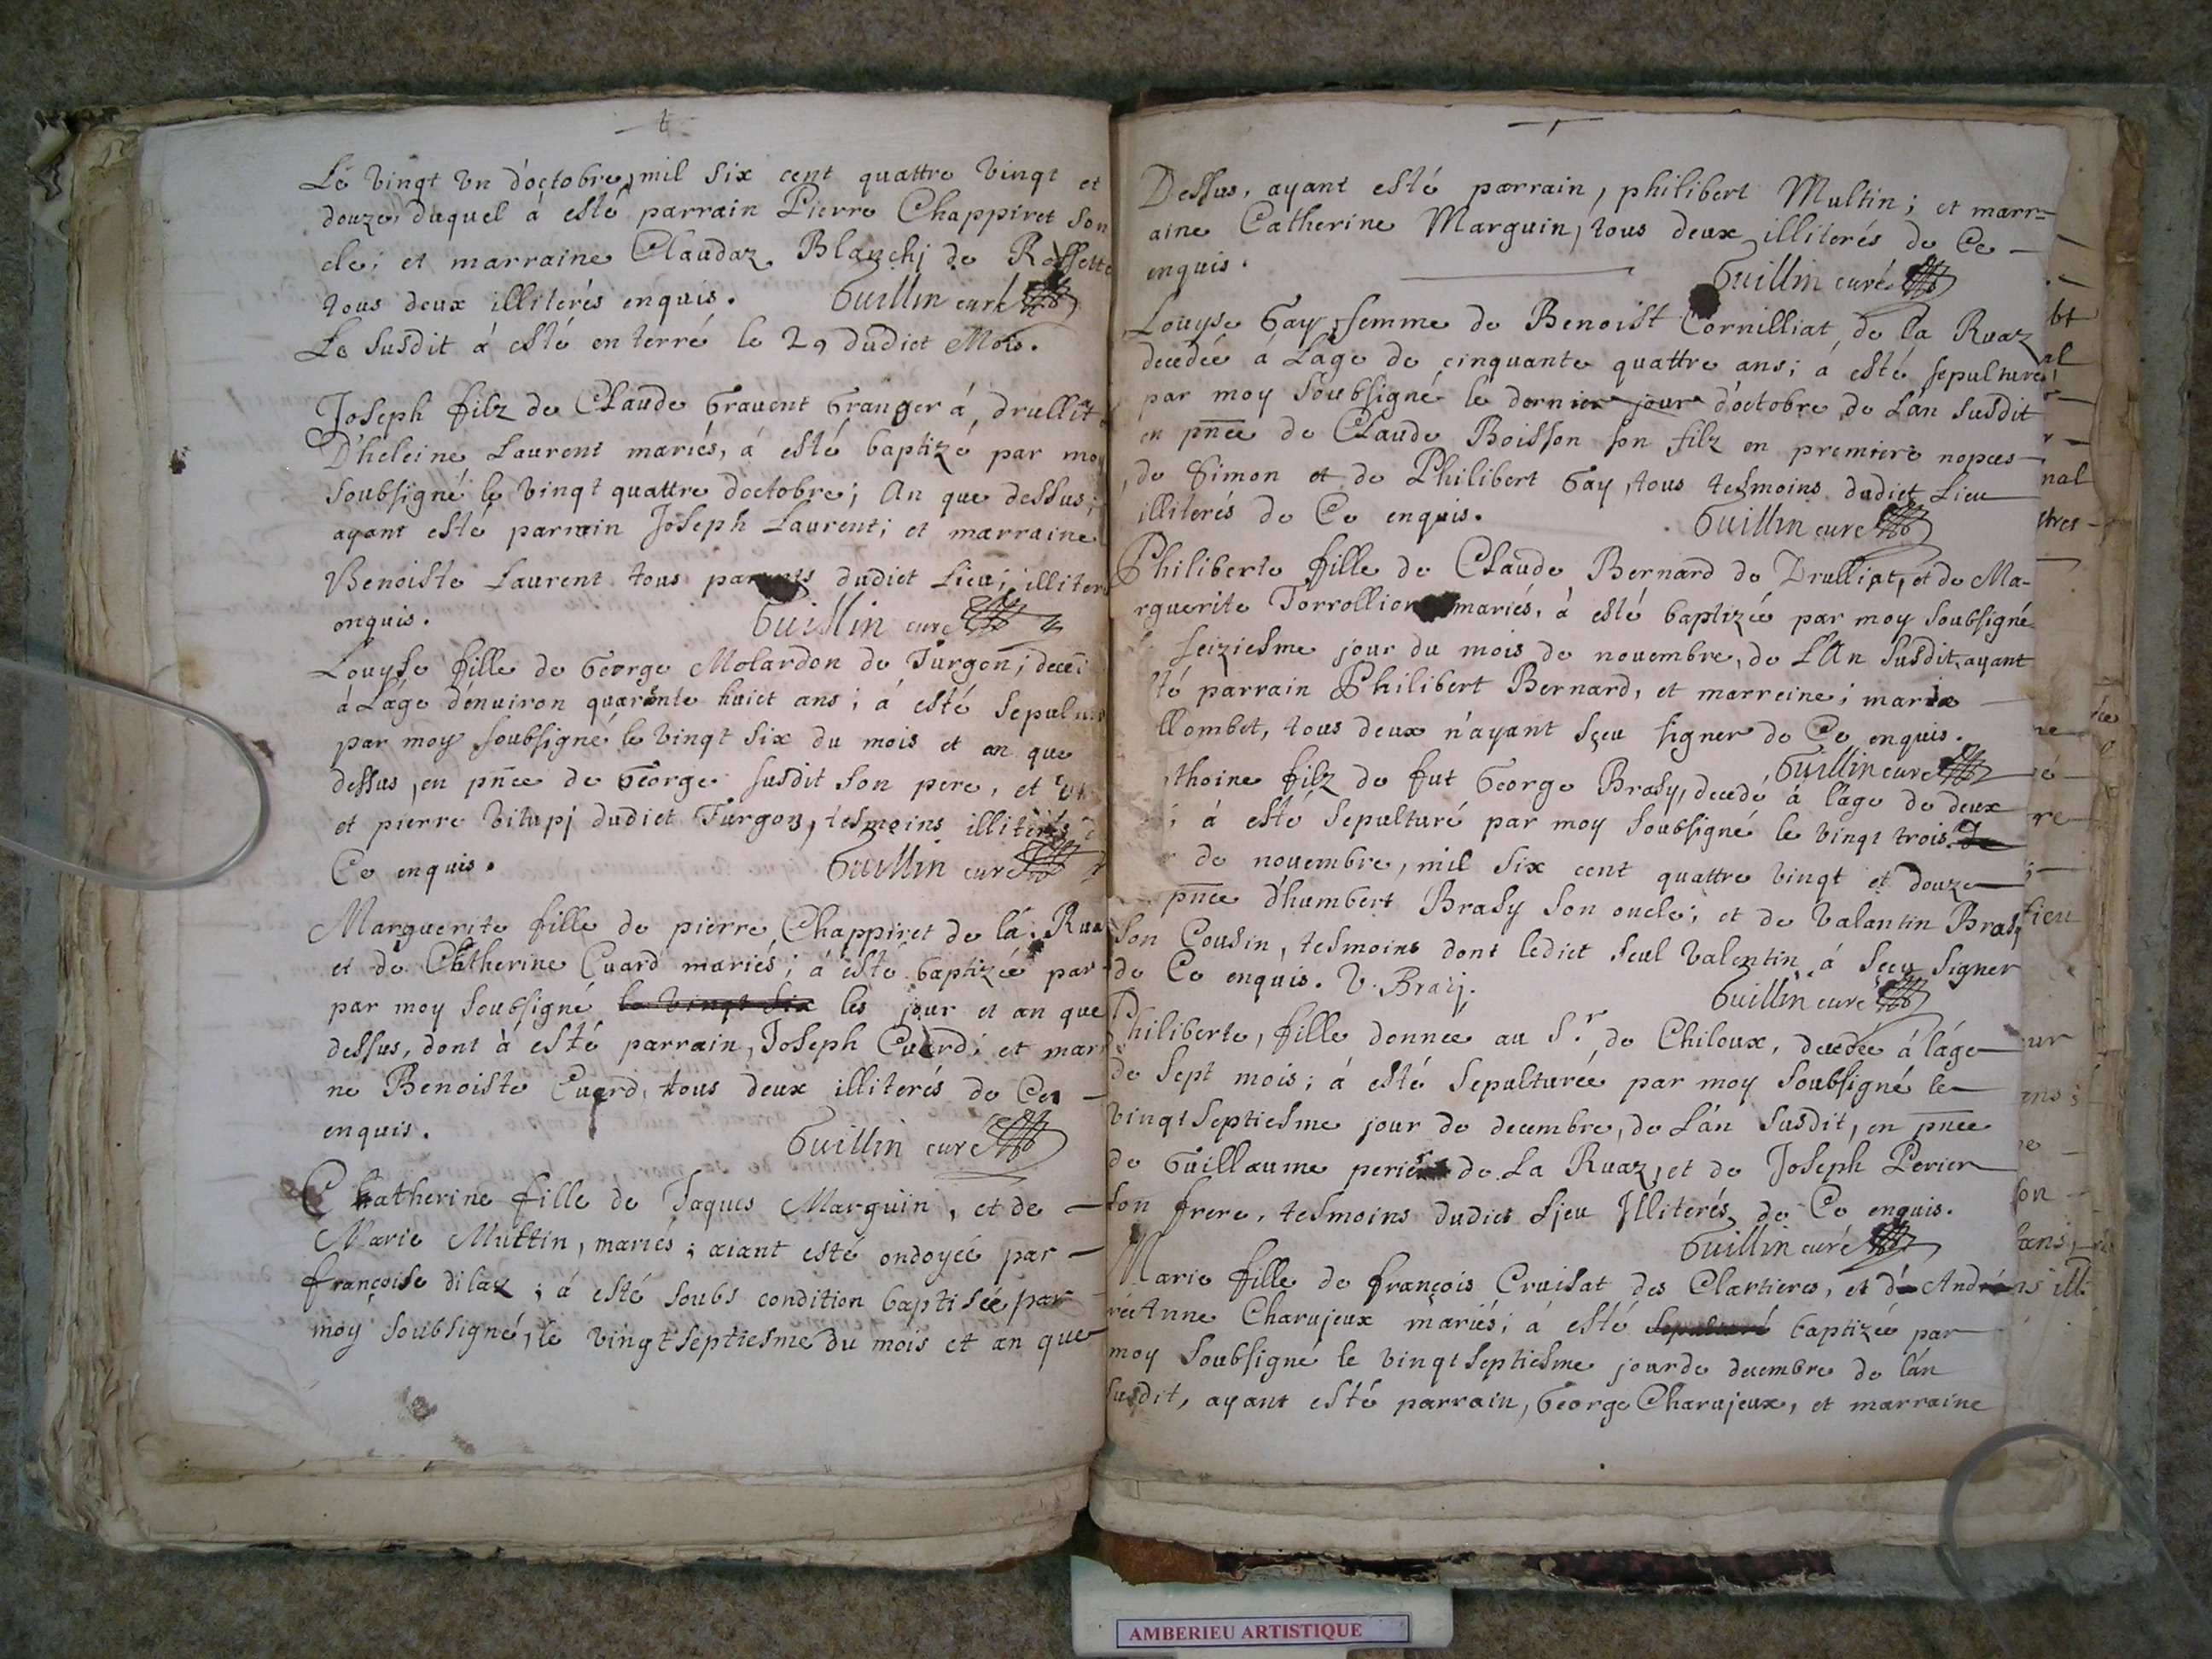 Le vingt vn d'octobre, mil six cent quattre vingt et
douze, duquel à esté parrain Pierre Chappiret son
cle; et marraine Claudaz Blanchj de Rossette
tous deux illiterés enquis. Guillin curé
Le susdit á esté enterré le 29 dudict Mois.
Joseph filz de Claude Grauent Granger á drullit
D'heleine Laurent mariés, à esté baptizé par moy
soubsigné le vingt quattre doctobre; An que dessus;
ayant esté parrain Joseph Laurent; et marraine
Benoiste Laurent tous parents dudict Lieu; illiter
enquis. Guillin curé
Louyse fille de George Molardon de Turgon; decé
à Láge dénuiron quarente huict ans; á esté sepultu
par moy soubsigné le vingt six du mois et an que
dessus, en pn̄ce de George susdit son pere, et
et pierre Vitupj dudict Turgon, tesmoins illiterés
Ce enquis. Guillin curé
Marguerite fille de pierre Chappiret de lá Rua
et de Catherine Cuard mariés; á esté baptizée par
par moy soubsigné le vingt six les jour et an que
dessus, dont à esté parrain, Joseph Cuard; et marr
ne Benoiste Cuard, tous deux illiterés de Ce
enquis. Guillin curé
Chatherine fille de Jaques Marguin, et de
Marie Multin, mariés; aiant esté ondoyée par
françoise dilaz; á esté soubs condition baptisée par
moy soubsigné, le vingt septiesme du mois et an que
Dessus, ayant esté parrain, philibert Multin; et marr=
aine Catherine Marguin, tous deux illiterés de Ce
enquis. Guillin curé
Louyse Gay femme de Benoist Cornilliat, de la Ruaz
decedée à Láge de cinquante quattre ans; á esté sepulturé
par moy soubsigné le dernier jour d'octobre de Lán susdit
en pn̄ce de Claude Boisson son filz en premiere nopces
de Simon et de Philibert Gay, tous tesmoins dudict Lieu
illiterés de Ce enquis. Guillin curé
Philiberte fille de Claude Bernard de Drulliat, et de Ma-
rguerite Torrollion mariés, à esté baptizée par moy soubsigné
seiziesme jour du mois de nouembre, de L'An susdit, ayant
té parrain Philibert Bernard, et marreine; marie
llombet, tous deux n'ayant sçeu signer de Ce enquis.
Guillin curé
thoine filz de fut George Brasy, decedé á láge de deux
; á esté sepulturé par moy soubsigné le vingt trois
de nouembre, mil six cent quattre vingt et douze
pn̄ce d'humbert Brasy son oncle; et de Valantin Brasy
son Cousin, tesmoins dont ledict seul Valentin á sçeu signer
de Ce enquis. V. Brasj. Guillin curé
Philiberte, fille donnée au S.r de Chiloux, decedée á láge
de sept mois; á esté sepulturée par moy soubsigné le
vingt septiesme jour de decembre, de Lán susdit, en pn̄ce
de Guillaume perier de La Ruaz, et de Joseph Perier
son frere, tesmoins dudict Ljeu Jlliterés de Ce enquis.
Guillin curé
Marie fille de françois Cruisat des Clartieres, et d' André
rée Anne Charujeux mariés; á esté sepulturé baptizée par
moy soubsigné le vingt septiesme jour de decembre de lán
susdit, ayant esté parrain, George Charujeux, et marraine
AMBERIEU ARTISTIQUE